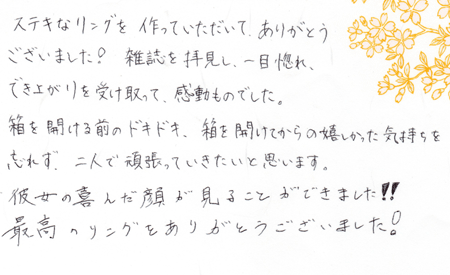 ステキなリングを作っていただいて、ありがとう
ございました! 雑誌を拝見し、一目惚れ、
でき上がりを受け取って、感動ものでした。
箱を開ける前のドキドキ、箱を開けてからの嬉しかった気持ちを
忘れず、二人で頑張っていきたいと思います。
彼女の喜んだ顔が見ることができました!!
最高のリングをありがとうございました!